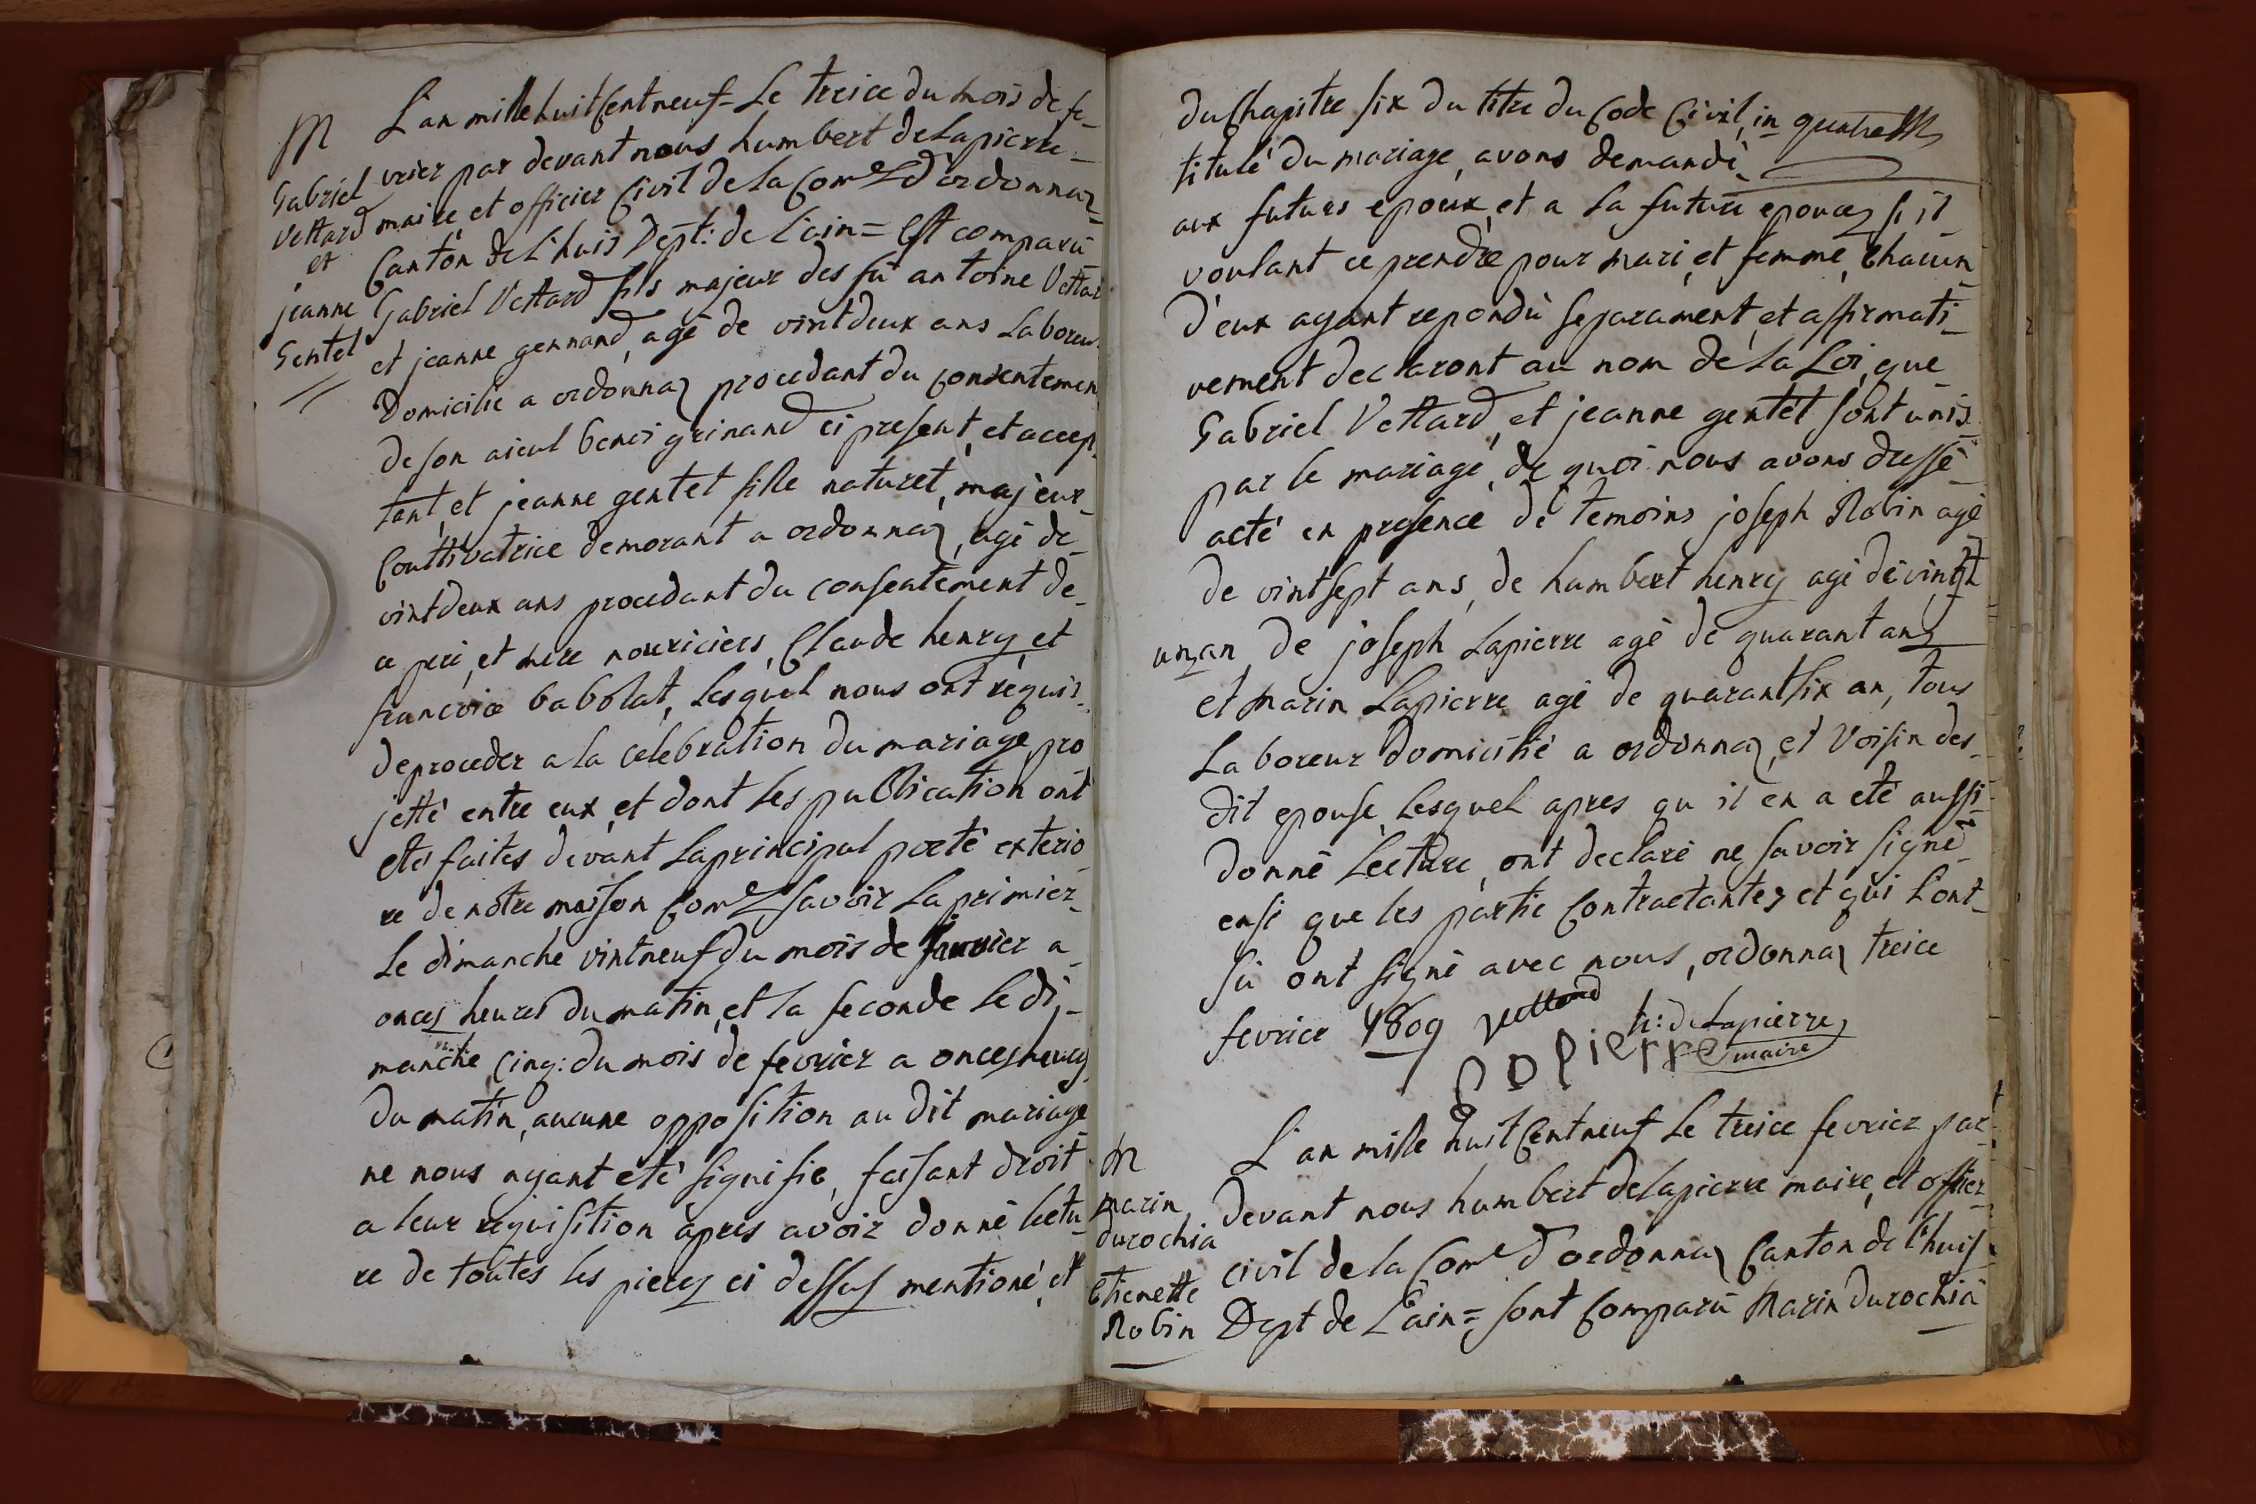 M
Gabriel
Vettard
et
jeanne
Gentet
L'an mille huit Cent neuf = Le treice du mois de fe-
vrier par devant nous humbert deLapierre
maire, et officier Civil de la Com.e d'ordonnaz
Canton de L'huis Dept: de L'ain = Est comparu
Gabriel Vettard fils majeur des fu antoine Vettar
et jeanne gennand, agé de vint deux ans Laboreu
Domicilie a ordonnaz procedant du consentemen
de son aieul benoi grinand ci present, et accep
tant, et jeanne gentet fille naturet, majeur
Coultivatrice demorant a ordonnaz, agé de
vint deux ans procedant du consentement de
ce peré, et mere nouriciers, Claude henry, et
francoice babolat, Lesquel nous ont requis
de proceder a la celebration du mariage pro
jetté entre eux, et dont Les publication ont
eté faites devant Laprincipal porte exterio
re de notre maison Com.e Savoir La primier
Le dimanche vintneuf du mois de janvier a
onces heures du matin, et la seconde le di-
manche Cinq: du mois de fevrier a onces heures
du matin, aucune opposition au dit mariage
ne nous ayant eté signifie, faisant droit
a leur requisition apres avoir donné lectu
re de toutes les pieces ci dessus mentioné, et
du Chapitre six du titre du Code Civil, in quatre
titulé du mariage, avons demandé
aux futurs epoux, et a La future epouce, s'il
voulant ce prendre pour mari, et femme, Chacun
d'eux ayant repondu separament, et affirmati-
vement declaront au nom de La Loi, que
Gabriel Vettard, et jeanne gentet sont unis
par le mariage, de quoi nous avons dressé
acté en presence de temoins joseph Robin agé
de vintsept ans, de humbert henry agé de vingt
un an de joseph Lapierre agé de quarant an
et Marin Lapierre agé de quarantsix an, tous
Laboreur domicilié a ordonnaz, et Voisin des
dit epouse, Lesquel apres qu il en a eté aussi
donné Lecture, ont declaré ne savoir signé
ensi que les partie Contractantes et qui L'ont
su ont signé avec nous, ordonnaz treice
fevrier 1809 Vettard h: deLapierre
maire
M
marin
durochia
Etienette
Robin
L'an mille huit Cent neuf Le treice fevrier par
devant nous humbert delapierre maire, et officier
civil de la Com.e d'ordonnaz Canton de L'huis
Dept de L'ain = sont Comparu Marin durochia